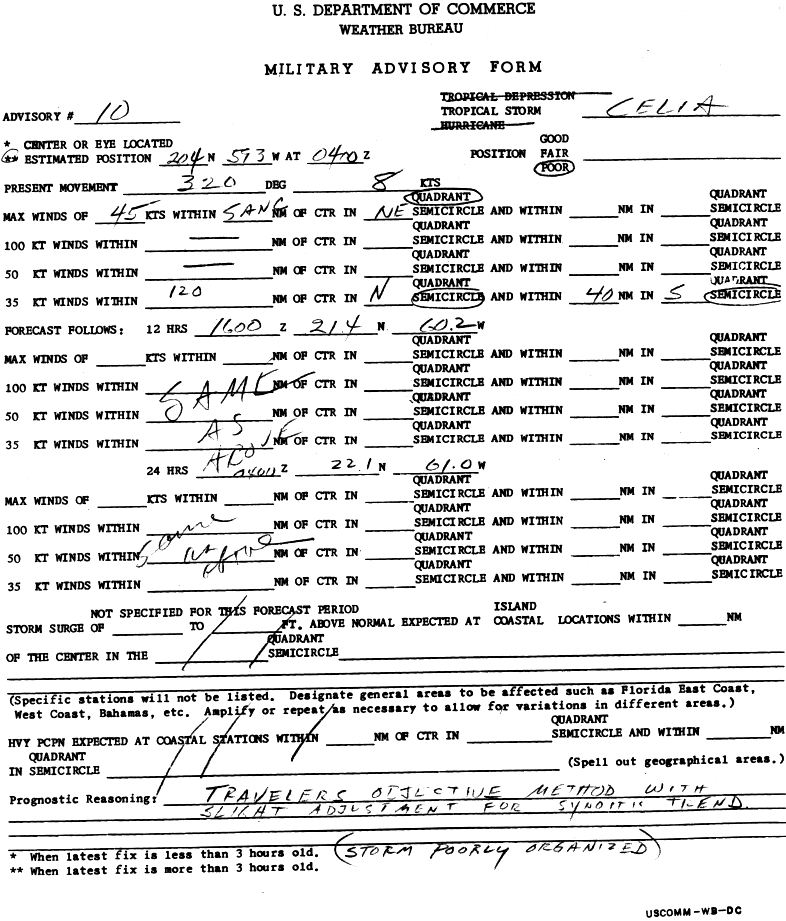 U. S. DEPARTMENT OF COMMERCE
WEATHER BUREAU
MILITARY ADVISORY FORM
TROPICAL DEPRESSION
ADVISORY # 10 TROPICAL STORM CELIA
HURRICANE
* CENTER OR EYE LOCATED GOOD
** ESTIMATED POSITION 204 N 573 W AT 0400 Z POSITION FAIR
POOR
PRESENT MOVEMENT 320 DEG 8 KTS
QUADRANT QUADRANT
MAX WINDS OF 45 KTS WITHIN NM OF CTR IN NE SEMICIRCLE AND WITHIN NM IN SEMICIRCLE
QUADRANT QUADRANT
100 KT WINDS WITHIN — NM OF CTR IN SEMICIRCLE AND WITHIN NM IN SEMICIRCLE
QUADRANT QUADRANT
50 KT WINDS WITHIN — NM OF CTR IN SEMICIRCLE AND WITHIN NM IN SEMICIRCLE
QUADRANT QUADRANT
35 KT WINDS WITHIN 120 NM OF CTR IN N SEMICIRCLE AND WITHIN 40 NM IN S SEMICIRCLE
FORECAST FOLLOWS: 12 HRS 1600 Z 21.4 N 60.2 W
QUADRANT QUADRANT
MAX WINDS OF KTS WITHIN NM OF CTR IN SEMICIRCLE AND WITHIN NM IN SEMICIRCLE
QUADRANT QUADRANT
100 KT WINDS WITHIN SAME NM OF CTR IN SEMICIRCLE AND WITHIN NM IN SEMICIRCLE
QUADRANT QUADRANT
50 KT WINDS WITHIN AS NM OF CTR IN SEMICIRCLE AND WITHIN NM IN SEMICIRCLE
QUADRANT QUADRANT
35 KT WINDS WITHIN ABOVE NM OF CTR IN SEMICIRCLE AND WITHIN NM IN SEMICIRCLE
24 HRS 0400 Z 22.1 N 61.0 W
QUADRANT QUADRANT
MAX WINDS OF KTS WITHIN NM OF CTR IN SEMICIRCLE AND WITHIN NM IN SEMICIRCLE
QUADRANT QUADRANT
100 KT WINDS WITHIN Same NM OF CTR IN SEMICIRCLE AND WITHIN NM IN SEMICIRCLE
QUADRANT QUADRANT
50 KT WINDS WITHIN NM OF CTR IN SEMICIRCLE AND WITHIN NM IN SEMICIRCLE
QUADRANT QUADRANT
35 KT WINDS WITHIN NM OF CTR IN SEMICIRCLE AND WITHIN NM IN SEMICIRCLE
NOT SPECIFIED FOR THIS FORECAST PERIOD ISLAND
STORM SURGE OF TO FT. ABOVE NORMAL EXPECTED AT COASTAL LOCATIONS WITHIN NM
QUADRANT
OF THE CENTER IN THE SEMICIRCLE
(Specific stations will not be listed. Designate general areas to be affected such as Florida East Coast,
West Coast, Bahamas, etc. Amplify or repeat as necessary to allow for variations in different areas.)
QUADRANT
HVY PCPN EXPECTED AT COASTAL STATIONS WITHIN NM OF CTR IN SEMICIRCLE AND WITHIN NM
QUADRANT
IN SEMICIRCLE (Spell out geographical areas.)
Prognostic Reasoning: TRAVELERS OBJECTIVE METHOD WITH
SLIGHT ADJUSTMENT FOR SYNOPTIC TREND.
* When latest fix is less than 3 hours old. (STORM POORLY ORGANIZED)
** When latest fix is more than 3 hours old.
USCOMM-WB-DC